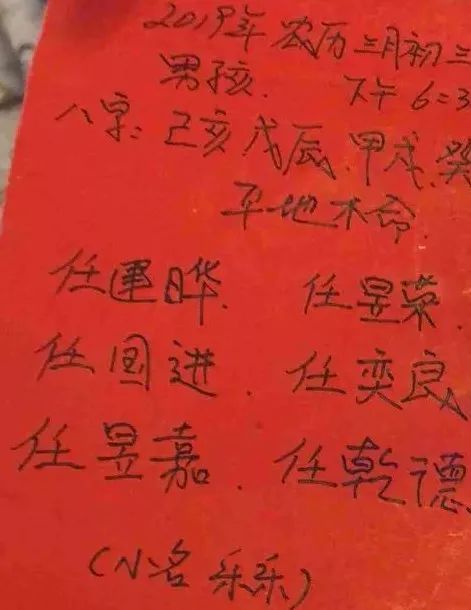 2019年 农历 三月初三
男孩. 下午 6:3
八字: 己亥 戊辰 甲戌 癸
平地木命.
任建晔. 任昱荣.
任国进. 任奕良
任昱嘉. 任乾德.
(小名 乐乐)